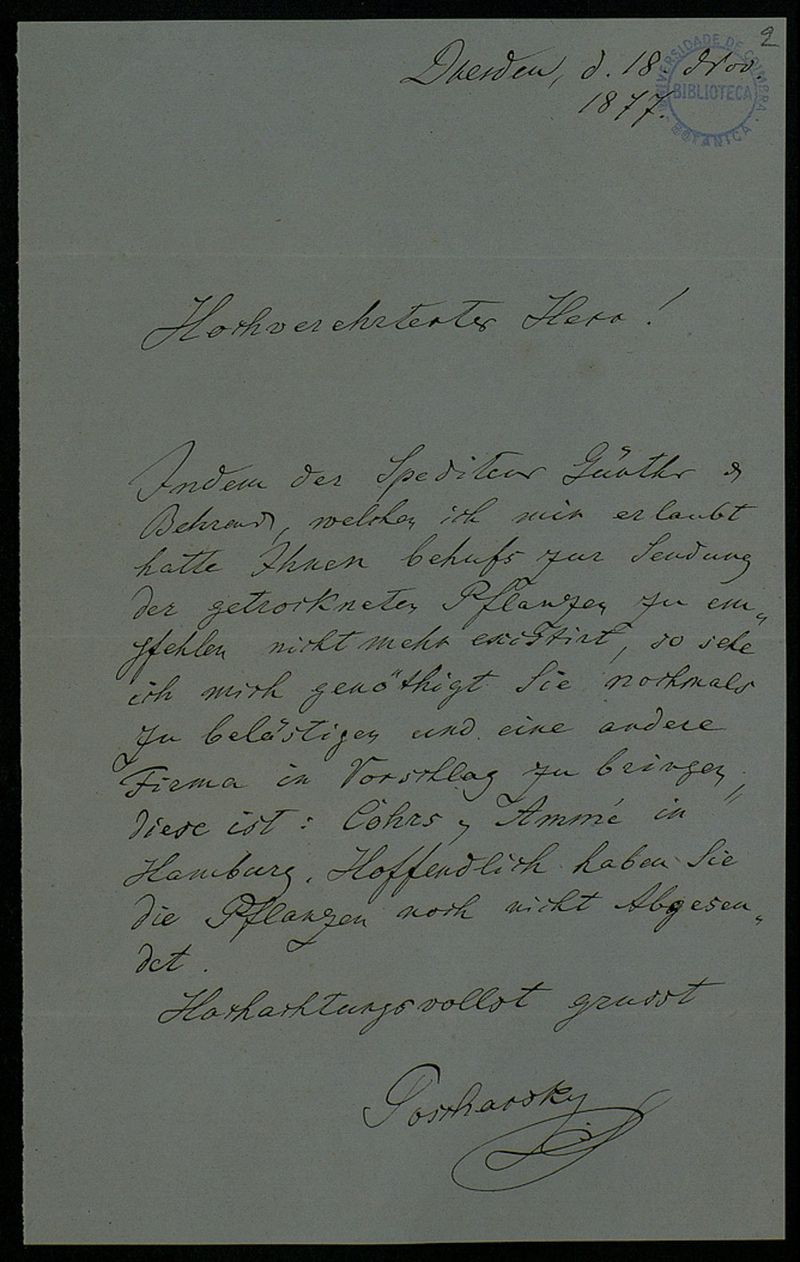 2
Dresden, d. 18. Nov.
1877.
UNIVERSIDADE DE COIMBRA
BIBLIOTECA
BOTANICA
Hochverehrtester Herr!
Indem der Spediteur Günthr &
Behrend, welchen ich mir erlaubt
hatte Ihnen behufs zur Sendung
der getrockneten Pflanzen zu em„
pfehlen nicht mehr existirt, so sehe
ich mich genöthigt Sie nochmals
zu belästigen und eine andere
Firma in Vorschlag zu bringen,
diese ist: Cöhrs & Ammé in
Hamburg. Hoffendlich haben Sie
die Pflanzen noch nicht Abgesen„
det.
Hochachtungsvollst grusst
Poscharsky